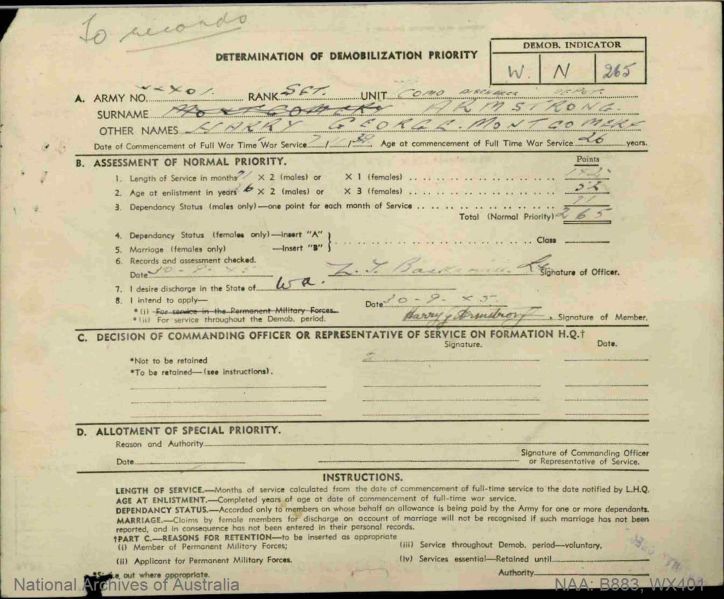 To records
DETERMINATION OF DEMOBILIZATION PRIORITY
DEMOB. INDICATOR
W. N 265
A. ARMY NO. RANK SGT. UNIT COMO
SURNAME MONTGOMERY ARMSTRONG.
OTHER NAMES HARRY GEORGE MONTGOMERY
Date of Commencement of Full War Time War Service Age at commencement of Full Time War Service 26 years.
B. ASSESSMENT OF NORMAL PRIORITY. Points
1. Length of Service in months 71 × 2 (males) or × 1 (females) 142
2. Age at enlistment in years 26 × 2 (males) or × 3 (females) 52
3. Dependency Status (males only)—one point for each month of Service 71
Total (Normal Priority) 265
4. Dependency Status (females only)—Insert "A"
5. Marriage (females only) —Insert "B" } Class
6. Records and assessment checked.
Date 20-9-45 Signature of Officer.
7. I desire discharge in the State of Wa.
8. I intend to apply— Date 20-9-45
*(i) For service in the Permanent Military Forces.
*(ii) For service throughout the Demob. period. Harry G Armstrong, Signature of Member.
C. DECISION OF COMMANDING OFFICER OR REPRESENTATIVE OF SERVICE ON FORMATION H.Q.†
Signature. Date.
*Not to be retained
*To be retained—(see instructions).
D. ALLOTMENT OF SPECIAL PRIORITY.
Reason and Authority
Signature of Commanding Officer
Date or Representative of Service.
INSTRUCTIONS.
LENGTH OF SERVICE.—Months of service calculated from the date of commencement of full-time service to the date notified by L.H.Q.
AGE AT ENLISTMENT.—Completed years of age at date of commencement of full-time war service.
DEPENDANCY STATUS.—Accorded only to members on whose behalf an allowance is being paid by the Army for one or more dependants.
MARRIAGE.—Claims by female members for discharge on account of marriage will not be recognised if such marriage has not been
reported, and in consequence has not been entered in their personal records.
†PART C.—REASONS FOR RETENTION—to be inserted as appropriate
(i) Member of Permanent Military Forces; (iii) Service throughout Demob. period—voluntary.
(ii) Applicant for Permanent Military Forces. (iv) Services essential—Retained until
out where appropriate. Authority
National Archives of Australia NAA: B883, WX401